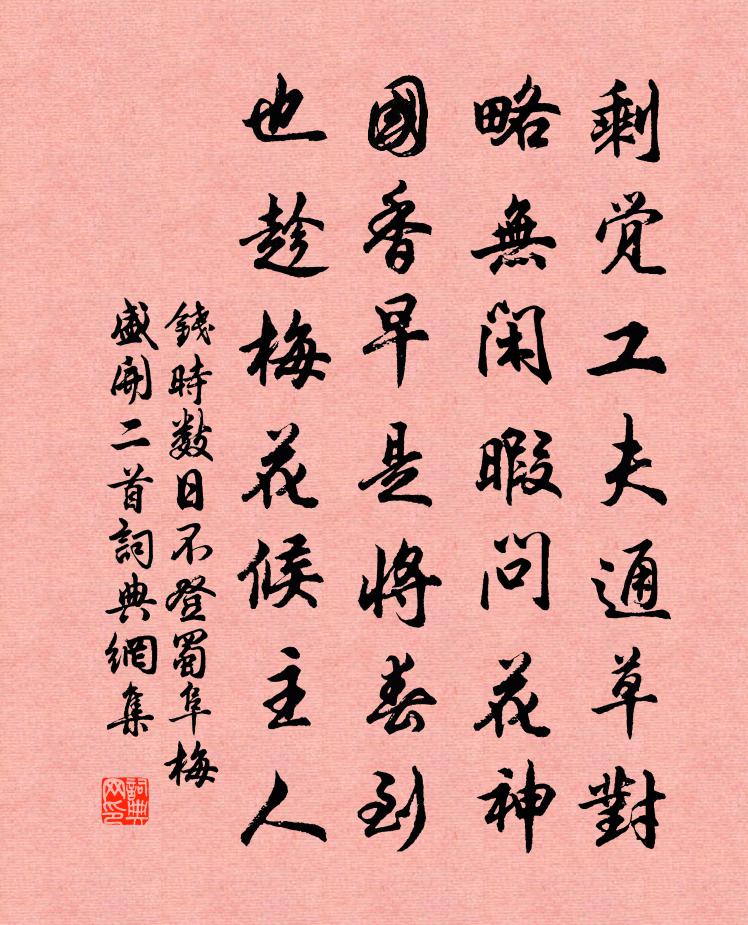 剩觉工夫通草對
略無閑暇問花神
國香早是將春到
也趁梅花候主人
錢時数日不登蜀阜梅
盛開二首詞典網集
詞典网印